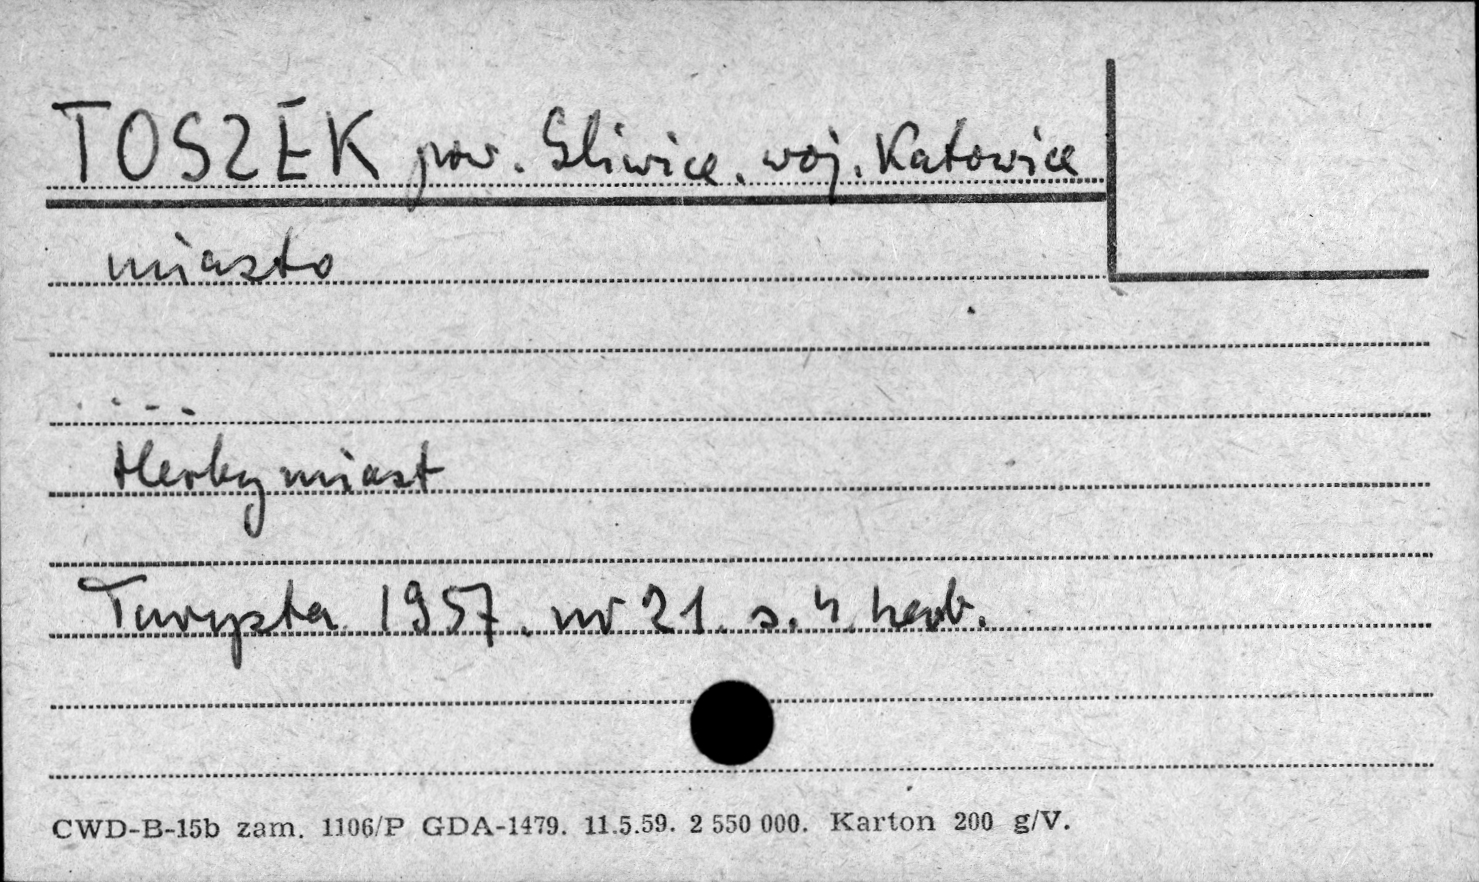 TOSZEK pow. Gliwice. woj. Katowice
miasto
Herby miast
Turysta 1957. nr 21. s. 4. herb.
CWD-B-15b zam. 1106/P GDA-1479. 11.5.59. 2 550 000. Karton 200 g/V.